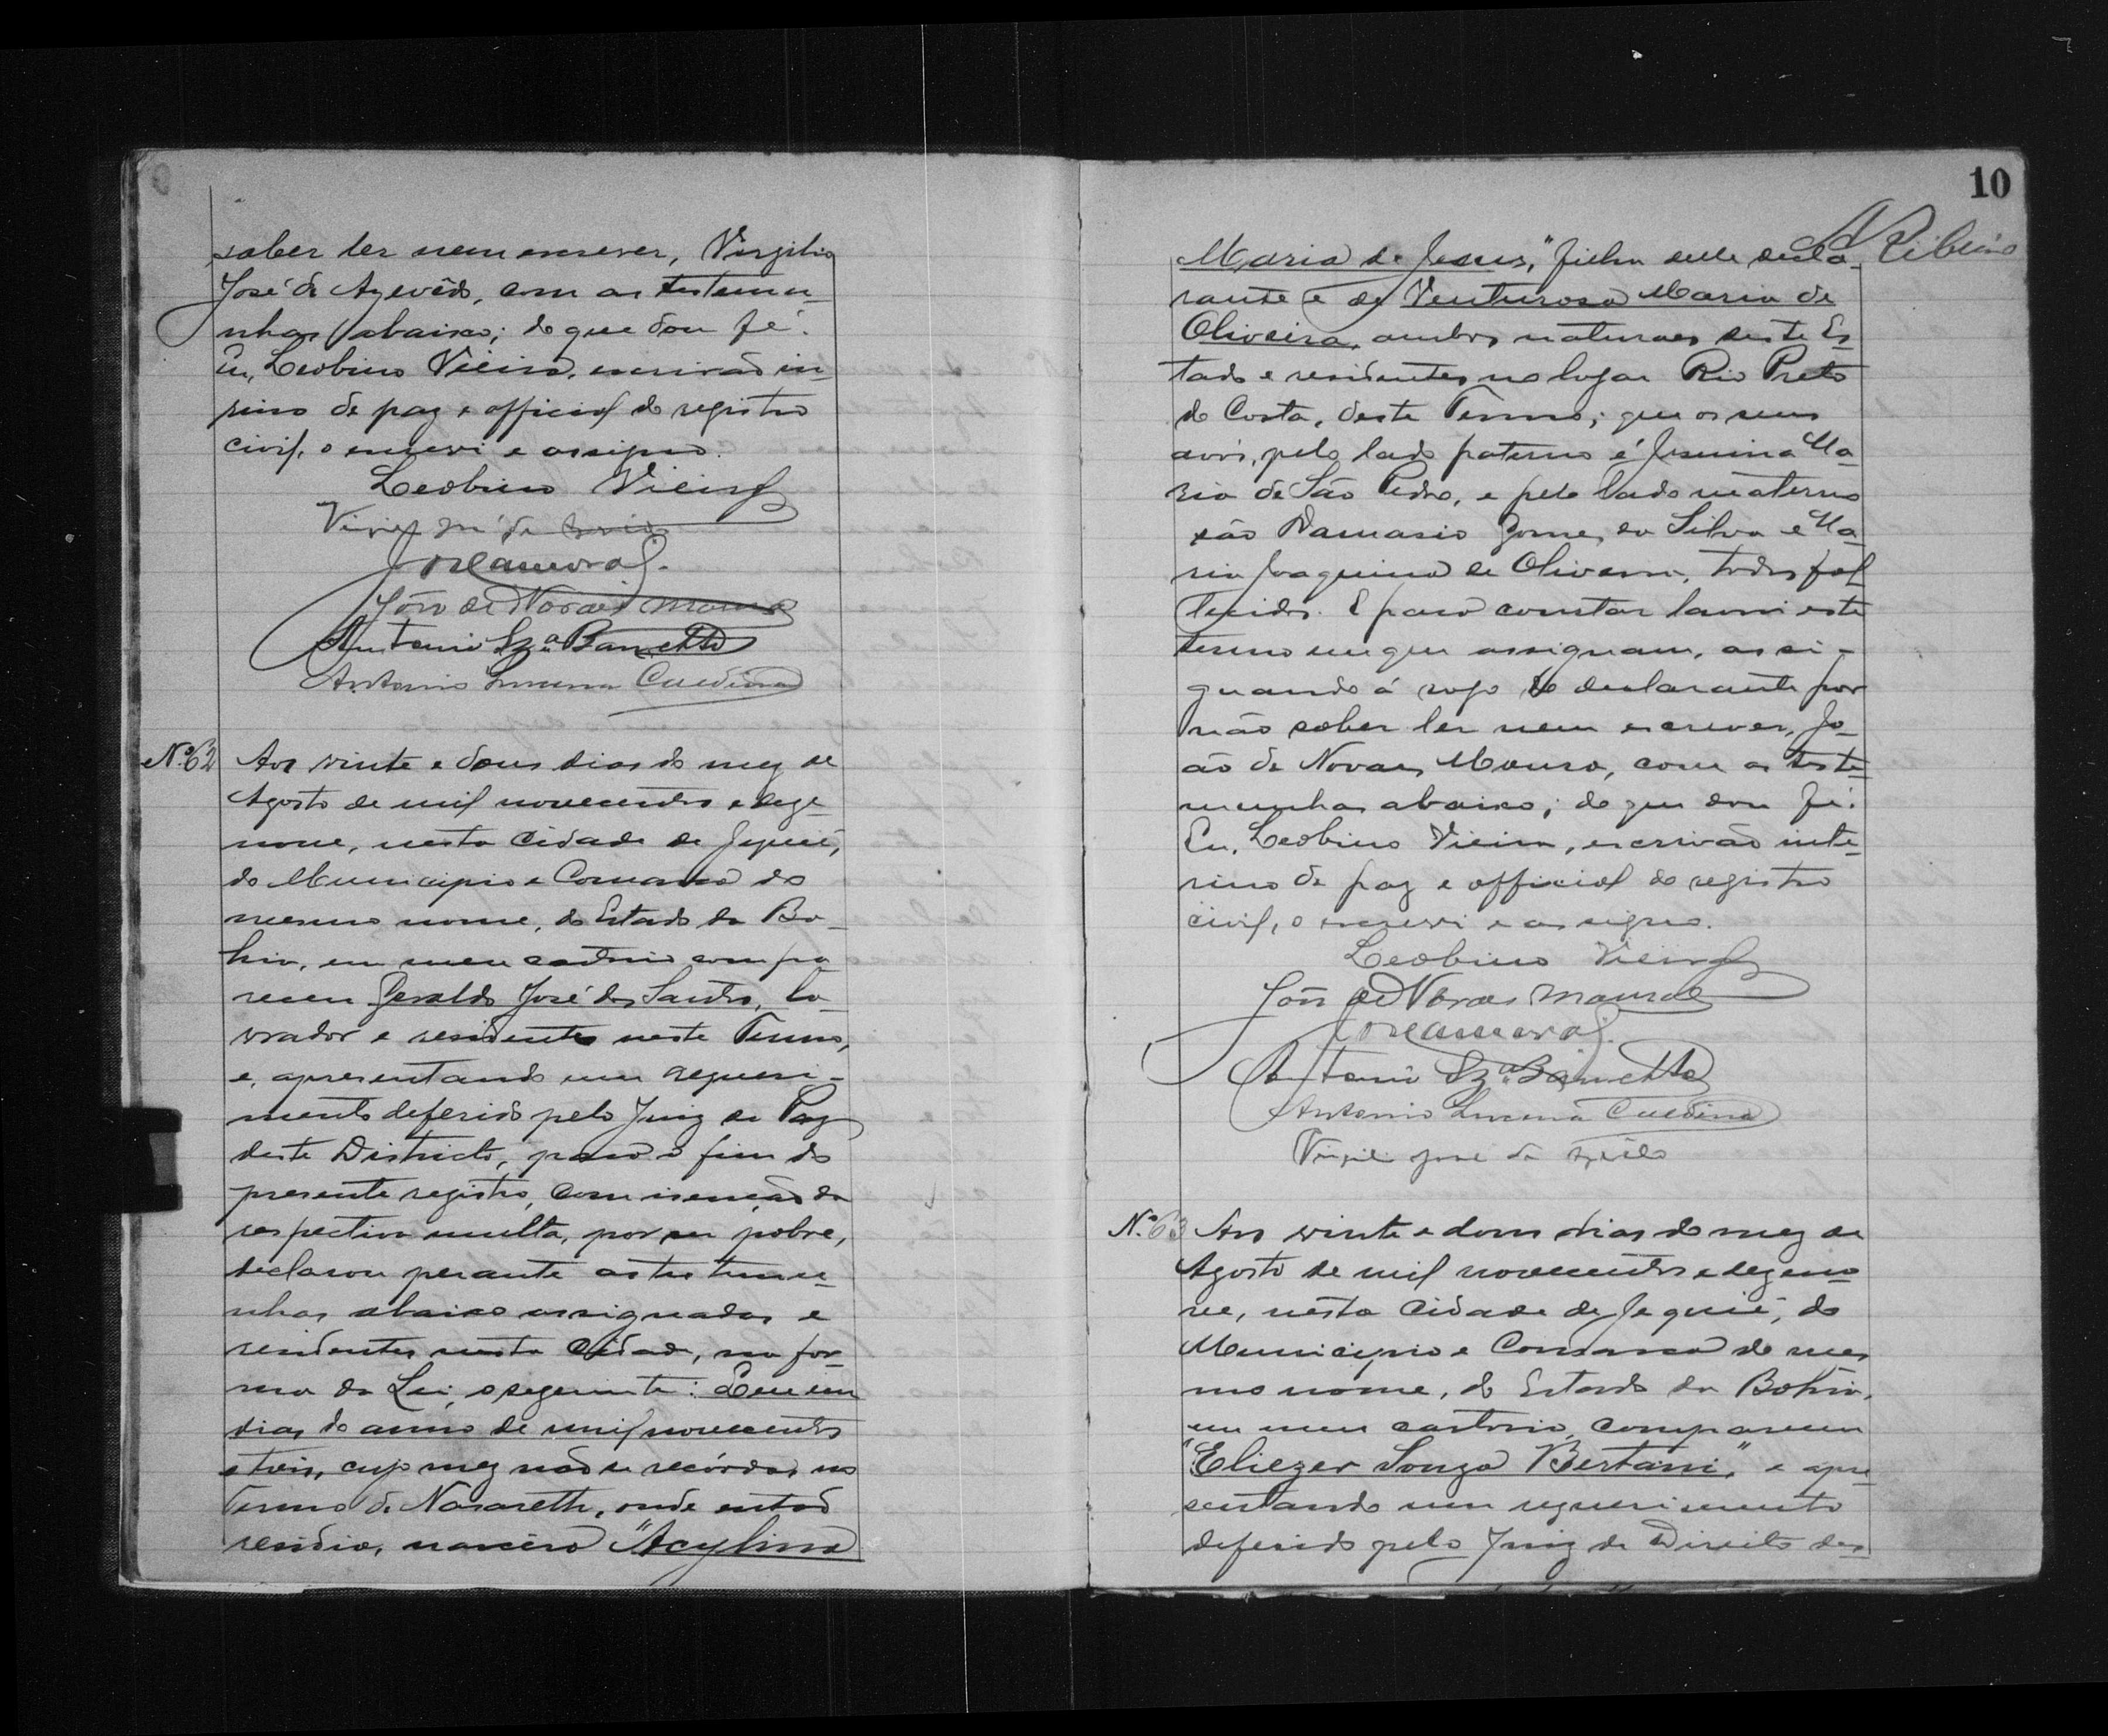 saber ler nem escrever, Virgilio
José de Azevêdo, com as testemu-
nhas abaixo; do que dou fé.
Eu, Leobino Vieira, escrivão in-
rino de paz e official do registro
civil, o escrevi e assigno.
Leobino Vieira
João de Novaes Moura
Antonio Sza. Barretto
Antonio Lucena
No. 62 Aos vinte e dous dias do mez de
Agosto de mil novecentos e deze-
nove, nesta Cidade de Jequié,
do Municipio e Comarca do
mesmo nome, do Estado da Ba-
hia, em meu cartorio compa
receu Geraldo José dos Santos, la-
vrador e residente neste Termo,
e, apresentando um requeri-
mento deferido pelo Juiz de Paz
deste Districto, para o fim do
presente registro, com isenção da
respectiva multa, por ser pobre,
declarou perante as testemu-
nhas abaixo assignadas e
residentes nesta Cidade, na for-
ma da Lei, o seguinte: Que em
dias do anno de mil novecentos
e tres, cujo mez não se recórda, no
Termo de Nasareth, onde entaõ
residia, nascêra "Acylina
10
Ribeiro
Maria de Jesus," filha delle decla-
rante e de Venturosa Maria de
Oliveira, ambos naturaes deste Es-
tado e residentes no logar Rio Preto
do Costa, deste Termo; que os seus
avós, pelo lado paterno é Jesuina Ma-
ria de São Pedro, e pelo lado materno
são Damasio Gomes da Silva e Ma-
ria Joaquina de Oliveira, todos fal
lecidos. E para constar lavrei este
termo em que assignam, assi-
gnando á rogo do declarante por
não saber ler nem escrever, Jo-
ão de Novaes Moura, com as teste-
munhas abaixo; do que dou fé.
Eu, Leobino Vieira, escrivão inte-
rino de paz e official do registro
civil, o escrevi e assigno.
Leobino Vieira
João de Novaes Moura
Antonio Sza. Barretto
Antonio Lucena
Virgilio José de
No. 63 Aos vinte e dous dias do mez de
Agosto de mil novecentos e dezeno
ve, nesta Cidade de Jequié, do
Municipio e Comarca do mes
mo nome, do Estado da Bahia,
em meu cartorio, compareceu
"Eliezer Souza Bertani," e apre
sentando um requerimento
deferido pelo Juiz de Direito des-